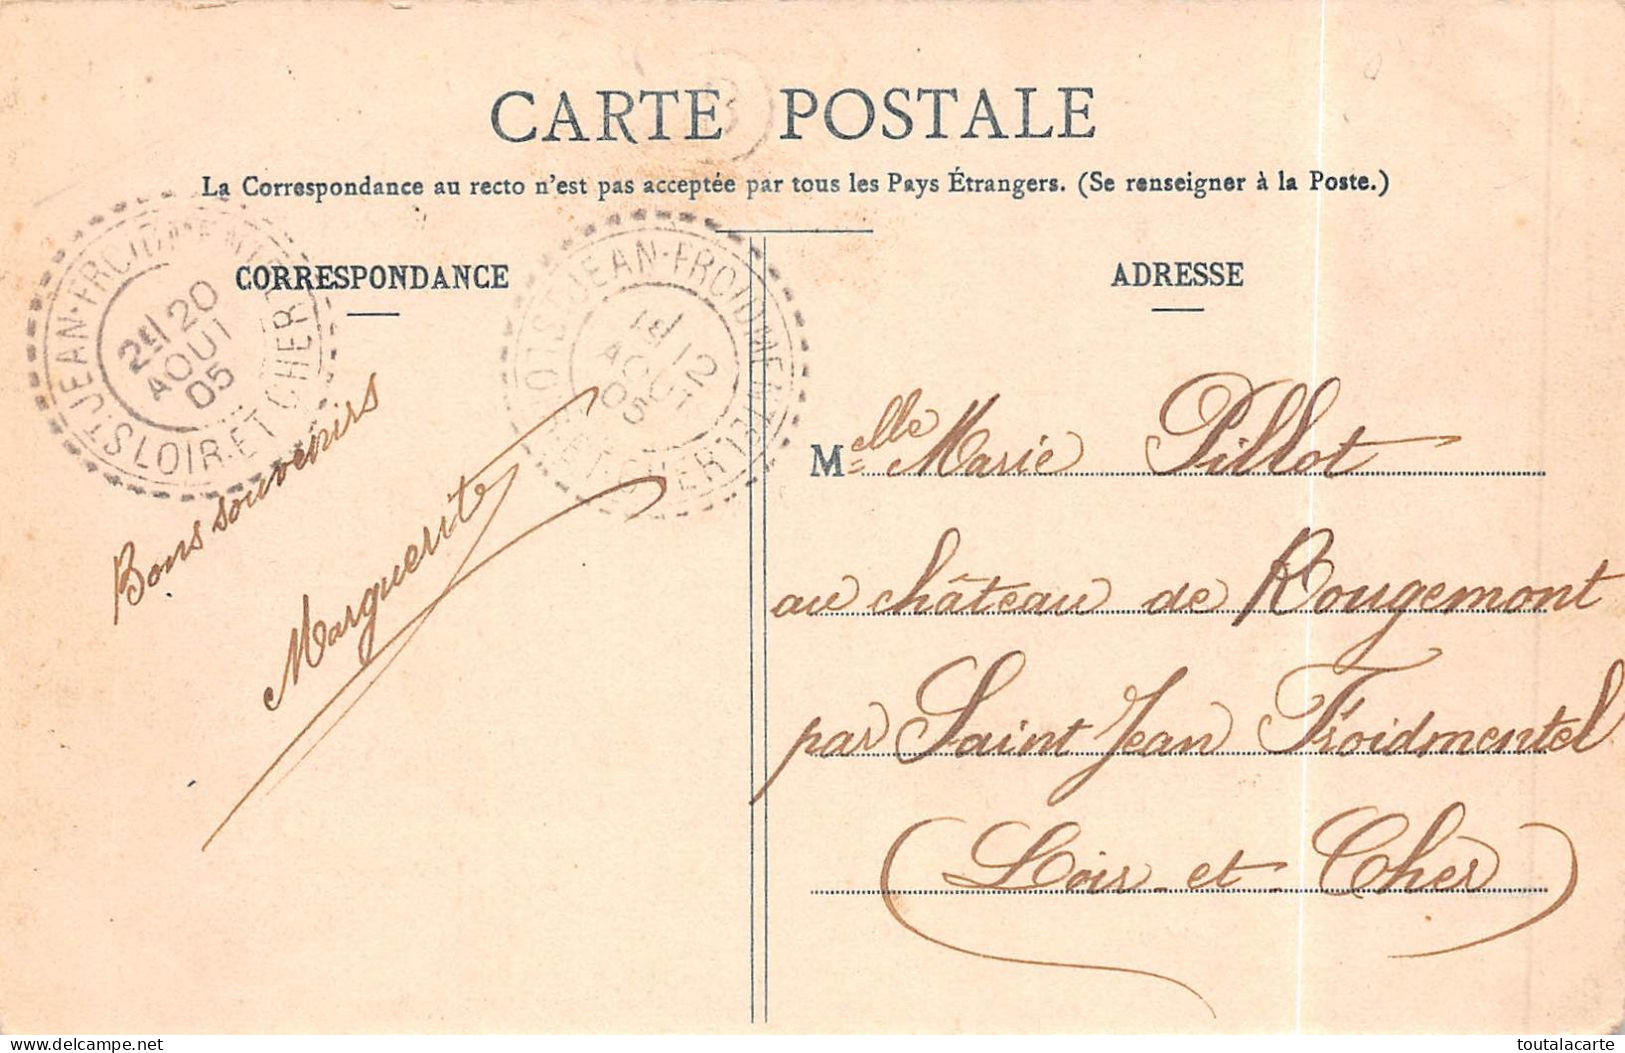 CARTE POSTALE
La Correspondance au recto n'est pas acceptée par tous les Pays Étrangers. (Se renseigner à la Poste.)
CORRESPONDANCE
ADRESSE
ST JEAN-FROIDMENTEL
20
AOUT
05
LOIR-ET-CHER
ST JEAN-FROIDMENTEL
12
AOUT
05
LOIR-ET-CHER
Bons souvenirs
Marguerite
Melle Marie Pillot
au château de Rougemont
par Saint Jean Froidmentel
(Loir-et-Cher)
www.delcampe.net
toutalacarte